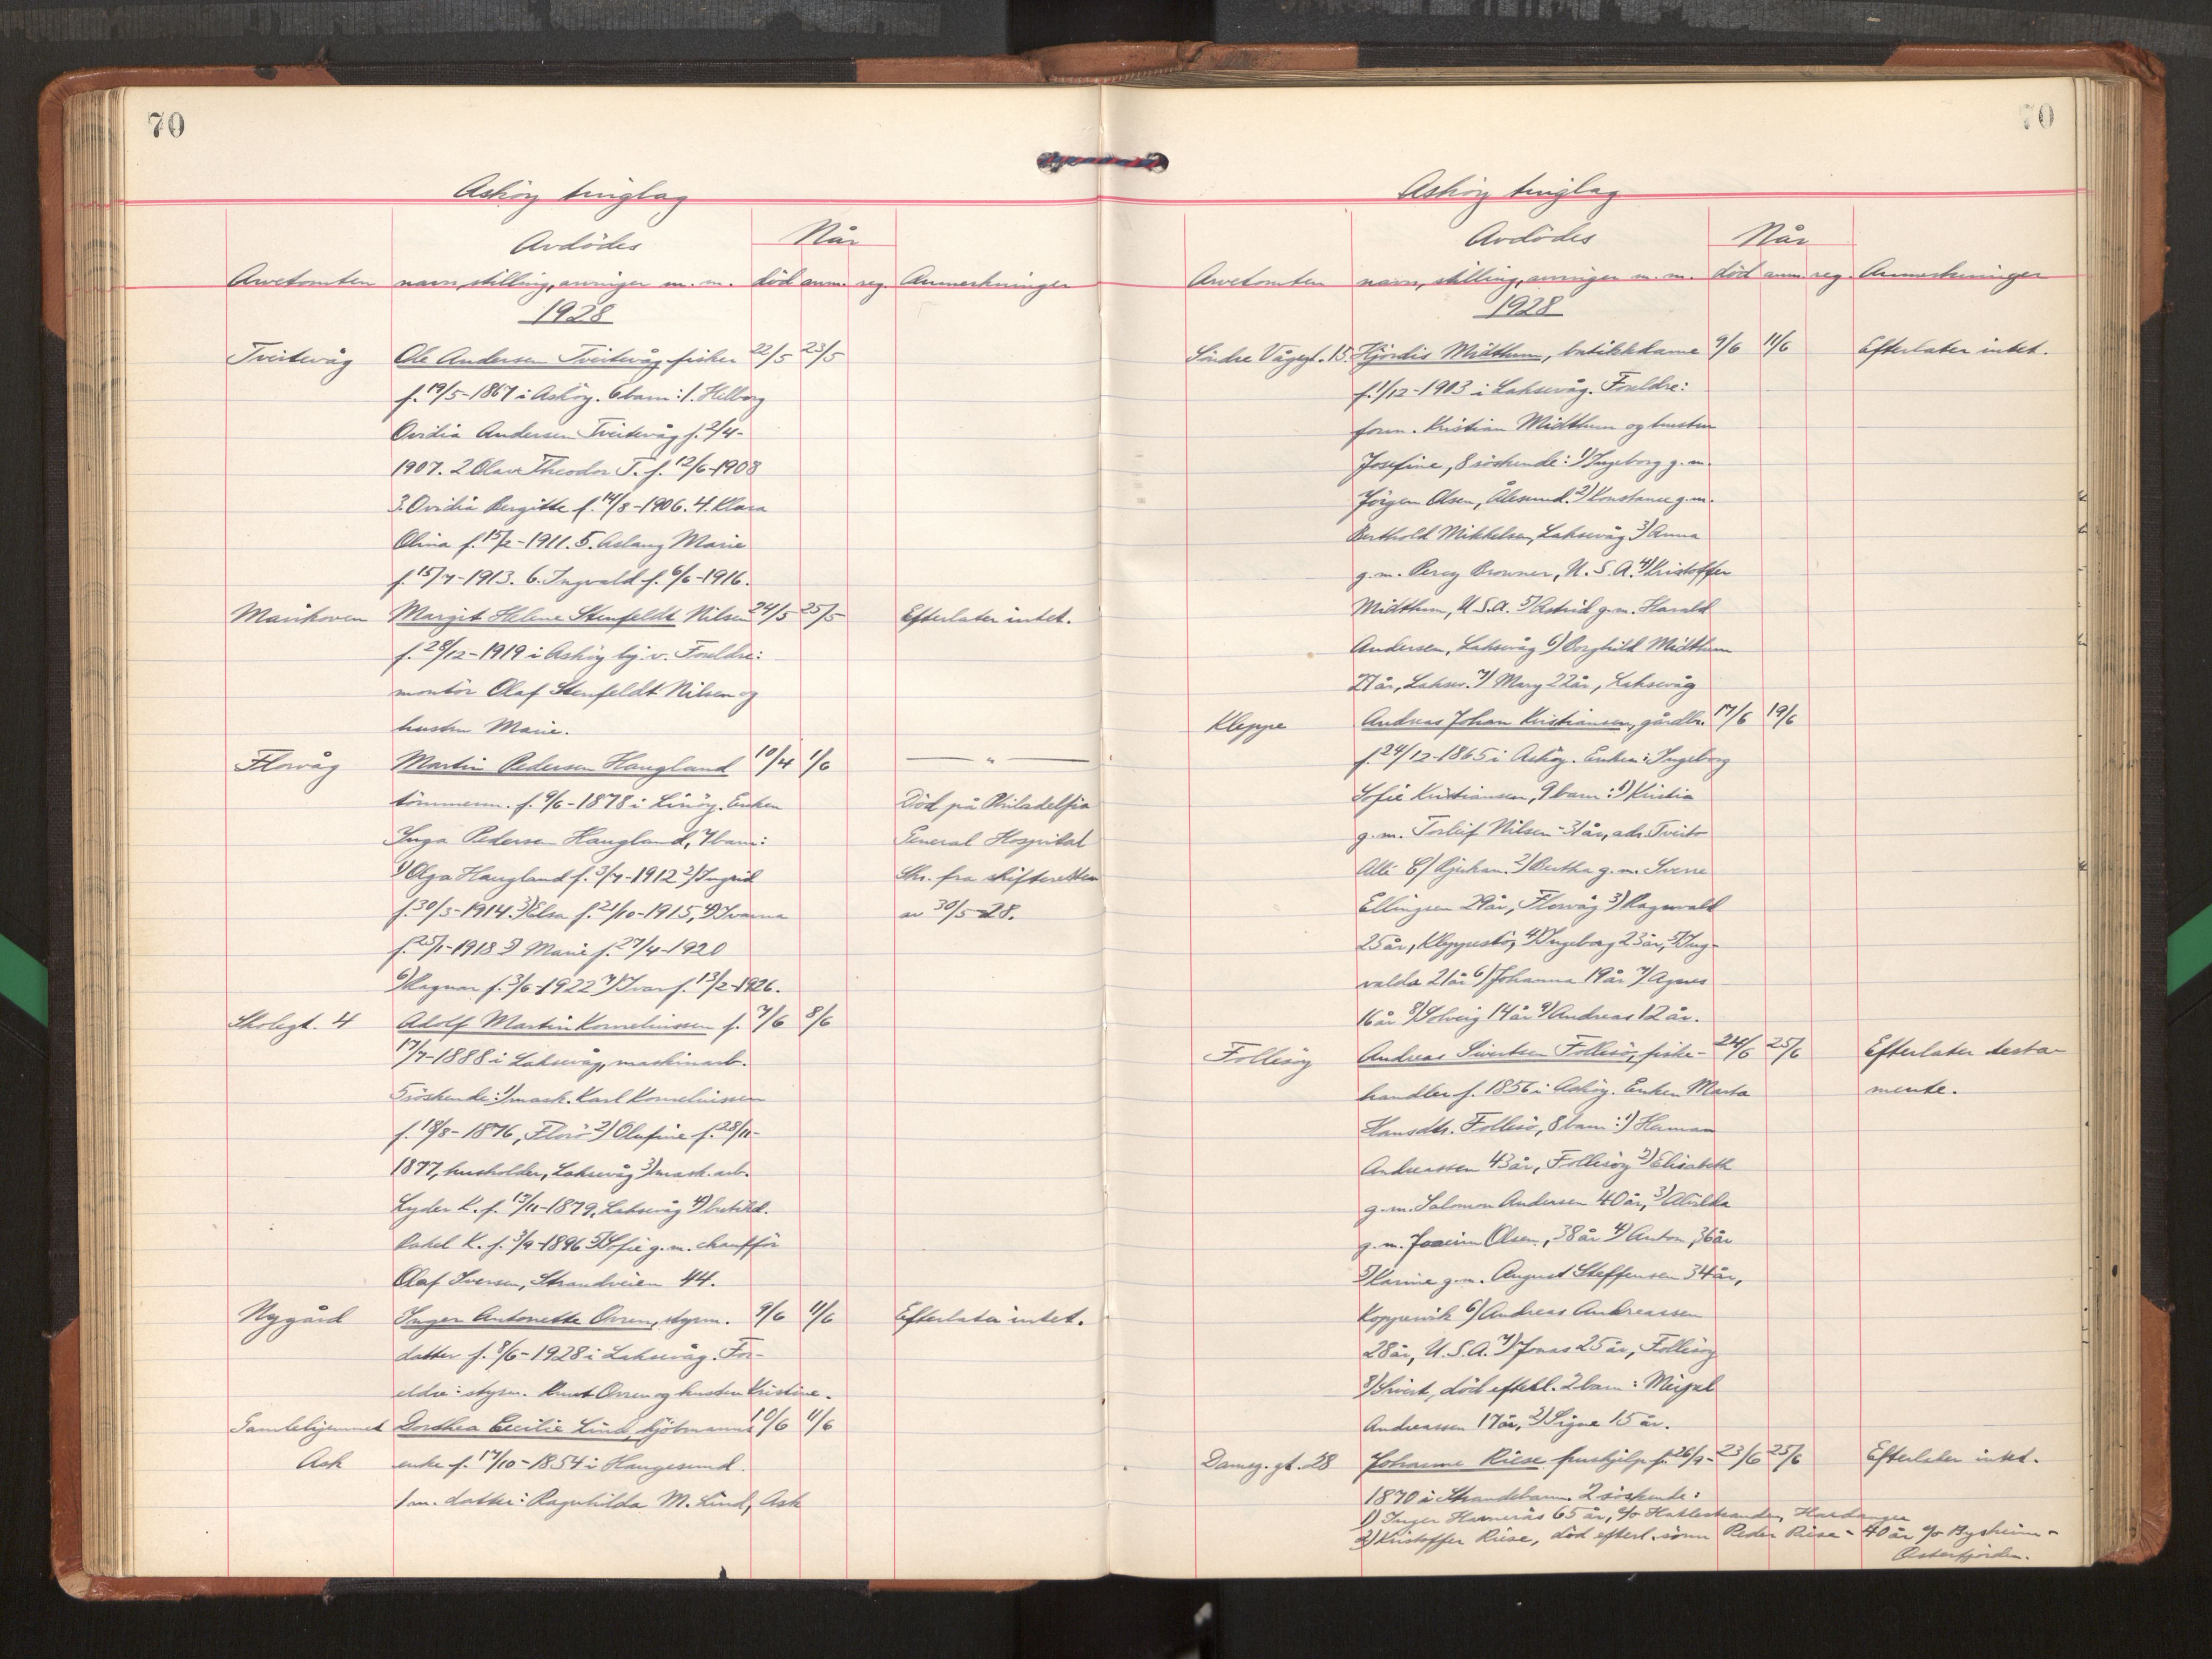 70
Asköy tinglag
Avdödes
Når
Arvetomten navn, stilling, arvinger m. m. död anm. reg. Anmerkninger
1928
Tveitevåg Ole Andersen Tveitevåg fisker 22/5 23/5
f. 19/5-1867 i Asköy. 6 barn: 1. Helborg
Ovidia Andersen Tveitevåg f. 2/4-
1907. 2 Olav Theodor T. f. 12/6-1908
3. Ovidia Bergitte f. 14/8-1906. 4. Klara
Olina f. 15/2-1911. 5. Aslaug Marie
f. 15/7-1913. 6. Ingvald f. 6/6-1916.
Marikoven Margit Helene Stenfeldt Nilsen 24/5 25/5 Efterlater intet.
f. 28/12-1919 i Asköy bj. v. Foreldre:
montör Olaf Stenfeldt Nilsen og
hustru Marie.
Florvåg Martin Pedersen Haugland 10/4 1/6 — " —
tömmerm. f. 9/6-1878 i Linöy. Enken Död på Philadelfia
Inga Pedersen Haugland, 7 barn: General Hospital
1) Olga Haugland f. 3/7-1912 2) Ingrid Skr. fra skifteretten
f. 30/3-1914. 3) Elsa f. 21/10-1915, 4) Ivarna av 30/5-28.
f. 25/1-1918 5) Marie f. 27/4-1920
6) Ragnar f. 3/6-1922 7) Ivar f. 13/2-1926.
Skolegt. 4 Adolf Martin Korneliussen f. 7/6 8/6
17/7-1888 i Laksevåg, maskinarb.
5 söskende: 1) mask. Karl Korneliussen
f. 18/8-1876, Florö 2) Olufine f. 28/11-
1877, husholder, Laksevåg 3) mask. arb.
Lyder K. f. 13/11-1879, Laksevåg 4) butikd.
Rakel K. f. 3/9-1896 5) Sofie g. m. chafför
Olaf Iversen, Strandveien 44.
Nygård Inger Antonette Orren, styrm. 9/6 11/6 Efterlater intet.
datter f. 8/6-1928 i Laksevåg. For-
eldre: styrm. Knut Orren og hustru Kristine.
Gamlehjemmet Dorthea Cecilie Lind, kjöbmanns 10/6 11/6
Ask enke f. 17/10-1854 i Haugesund.
1 m. datter: Ragnhilda M. Lind, Ask
70
Asköy tinglag
Avdödes
Når
Arvetomten navn, stilling, arvinger m. m. död anm. reg. Anmerkninger
1928
Söndre Vågegt. 15. Hjördis Midthun, butikkdame 9/6 11/6 Efterlater intet.
f. 1/12-1903 i Laksevåg. Foreldre:
form. Kristian Midthun og hustru
Josefine, 8 söskende: 1) Ingeborg g. m.
Jörgen Olsen, Ålesund. 2) Konstance g. m.
Berthold Mikkelsen, Laksevåg 3) Anna
g. m. Percy Browner, U. S. A. 4) Kristoffer
Midthun, U. S. A. 5) Astrid g. m. Harald
Andersen, Laksevåg 6) Borghild Midthun
27 år, Laksev. 7) Mary 22 år, Laksevåg
Kleppe Andreas Johan Kristiansen, gårdbr. 17/6 19/6
f. 24/12-1865 i Asköy. Enken: Ingeborg
Sofie Kristiansen, 9 barn: 1) Kirstia
g. m. Torleif Nilsen - 31 år, adr. Tveito
Allé 6/ Rjukan. 2) Bertha g. m. Sverre
Ellingsen 29 år, Florvåg 3) Ragnvald
25 år, Kleppestö, 4) Ingeborg 23 år, 5) Ing-
valda 21 år 6) Johanna 19 år 7) Agnes
16 år 8) Solveig 14 år 9) Andreas 12 år.
Follesöy Andreas Sivertsen Follesö, fiske- 24/6 25/6 Efterlater testa-
handler f. 1856 i Asköy. Enken Marta mente.
Hansdtr. Follesö, 8 barn: 1) Herman
Andreassen 43 år, Follesöy 2) Elisabeth
g. m. Salomon Andersen 40 år, 3) Alvilda
g. m. Joacim Olsen, 38 år 4) Anton, 36 år
5) Karine g. m. August Steffensen 34 år,
Koppervik 6) Andreas Andreassen
28 år, U. S. A. 7) Jonas 25 år, Follesöy
8) Sivert, död efterl. 2 barn: Meyel
Andreassen 17 år, 2) Signe 15 år.
Damsg. gt. 28 Johanne Riise hushjelp f. 26/9- 23/6 25/6 Efterlater intet.
1870 i Strandebarm 2 söskende:
1) Inger Hamerås 65 år, c/o Hatlestranden, Hardanger
2) Kristoffer Riise, död efterl. sönn Peder Riise - 40 år c/o Bysheim -
Osterfjorden.